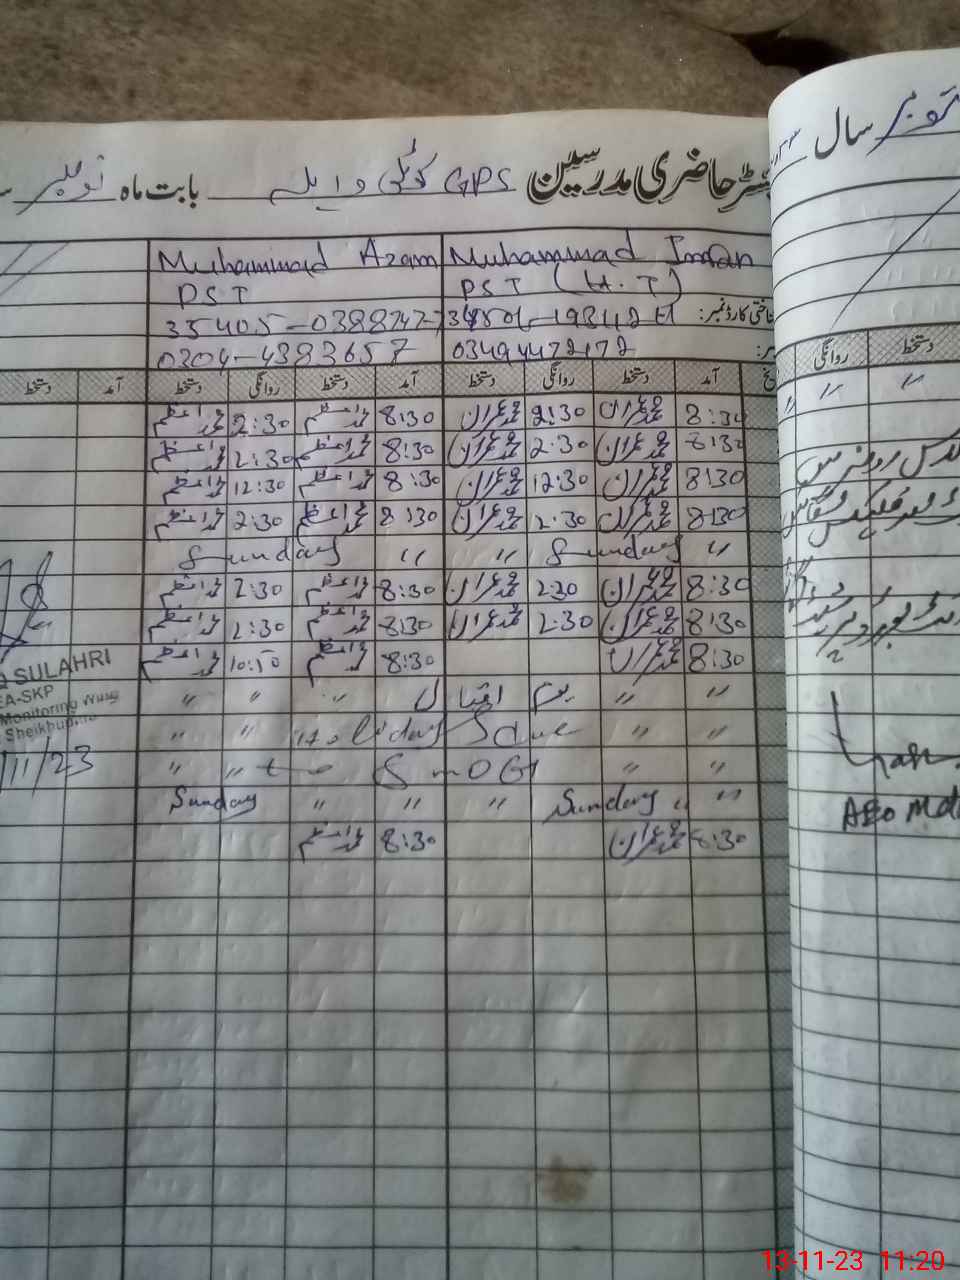 رجسٹر حاضری مدرسین GPS کوٹلی وایلہ بابت ماہ نومبر
سال نومبر
Muhammad Imran Muhammad Azam
PST (H.T) PST
شناختی کارڈ نمبر: 35405-0388747-7
03494472172 0304-4383657
آمد دستخط روانگی دستخط آمد دستخط روانگی دستخط آمد دستخط
روانگی دستخط
8:30 محمد عمران 2:30 محمد عمران 8:30 محمد اعظم 2:30 محمد اعظم
8:30 محمد عمران 2:30 محمد عمران 8:30 محمد اعظم 2:30 محمد اعظم
8:30 محمد عمران 12:30 محمد عمران 8:30 محمد اعظم 12:30 محمد اعظم
8:30 محمد عمران 2:30 محمد عمران 8:30 محمد اعظم 2:30 محمد اعظم
" Sunday " " Sunday
8:30 محمد عمران 2:30 محمد عمران 8:30 محمد اعظم 2:30 محمد اعظم
8:30 محمد عمران 2:30 محمد عمران 8:30 محمد اعظم 2:30 محمد اعظم
8:30 محمد عمران 8:30 محمد اعظم 10:50 محمد اعظم
" " یوم اقبال " " "
" " Holiday Due " "
" " to SmOG " "
" " Sunday " " " Sunday
8:30 محمد عمران 8:30 محمد اعظم
SULAHRI
EA-SKP
Monitoring Wing
Sheikhupura
/11/23
AEO
13-11-23 11:20